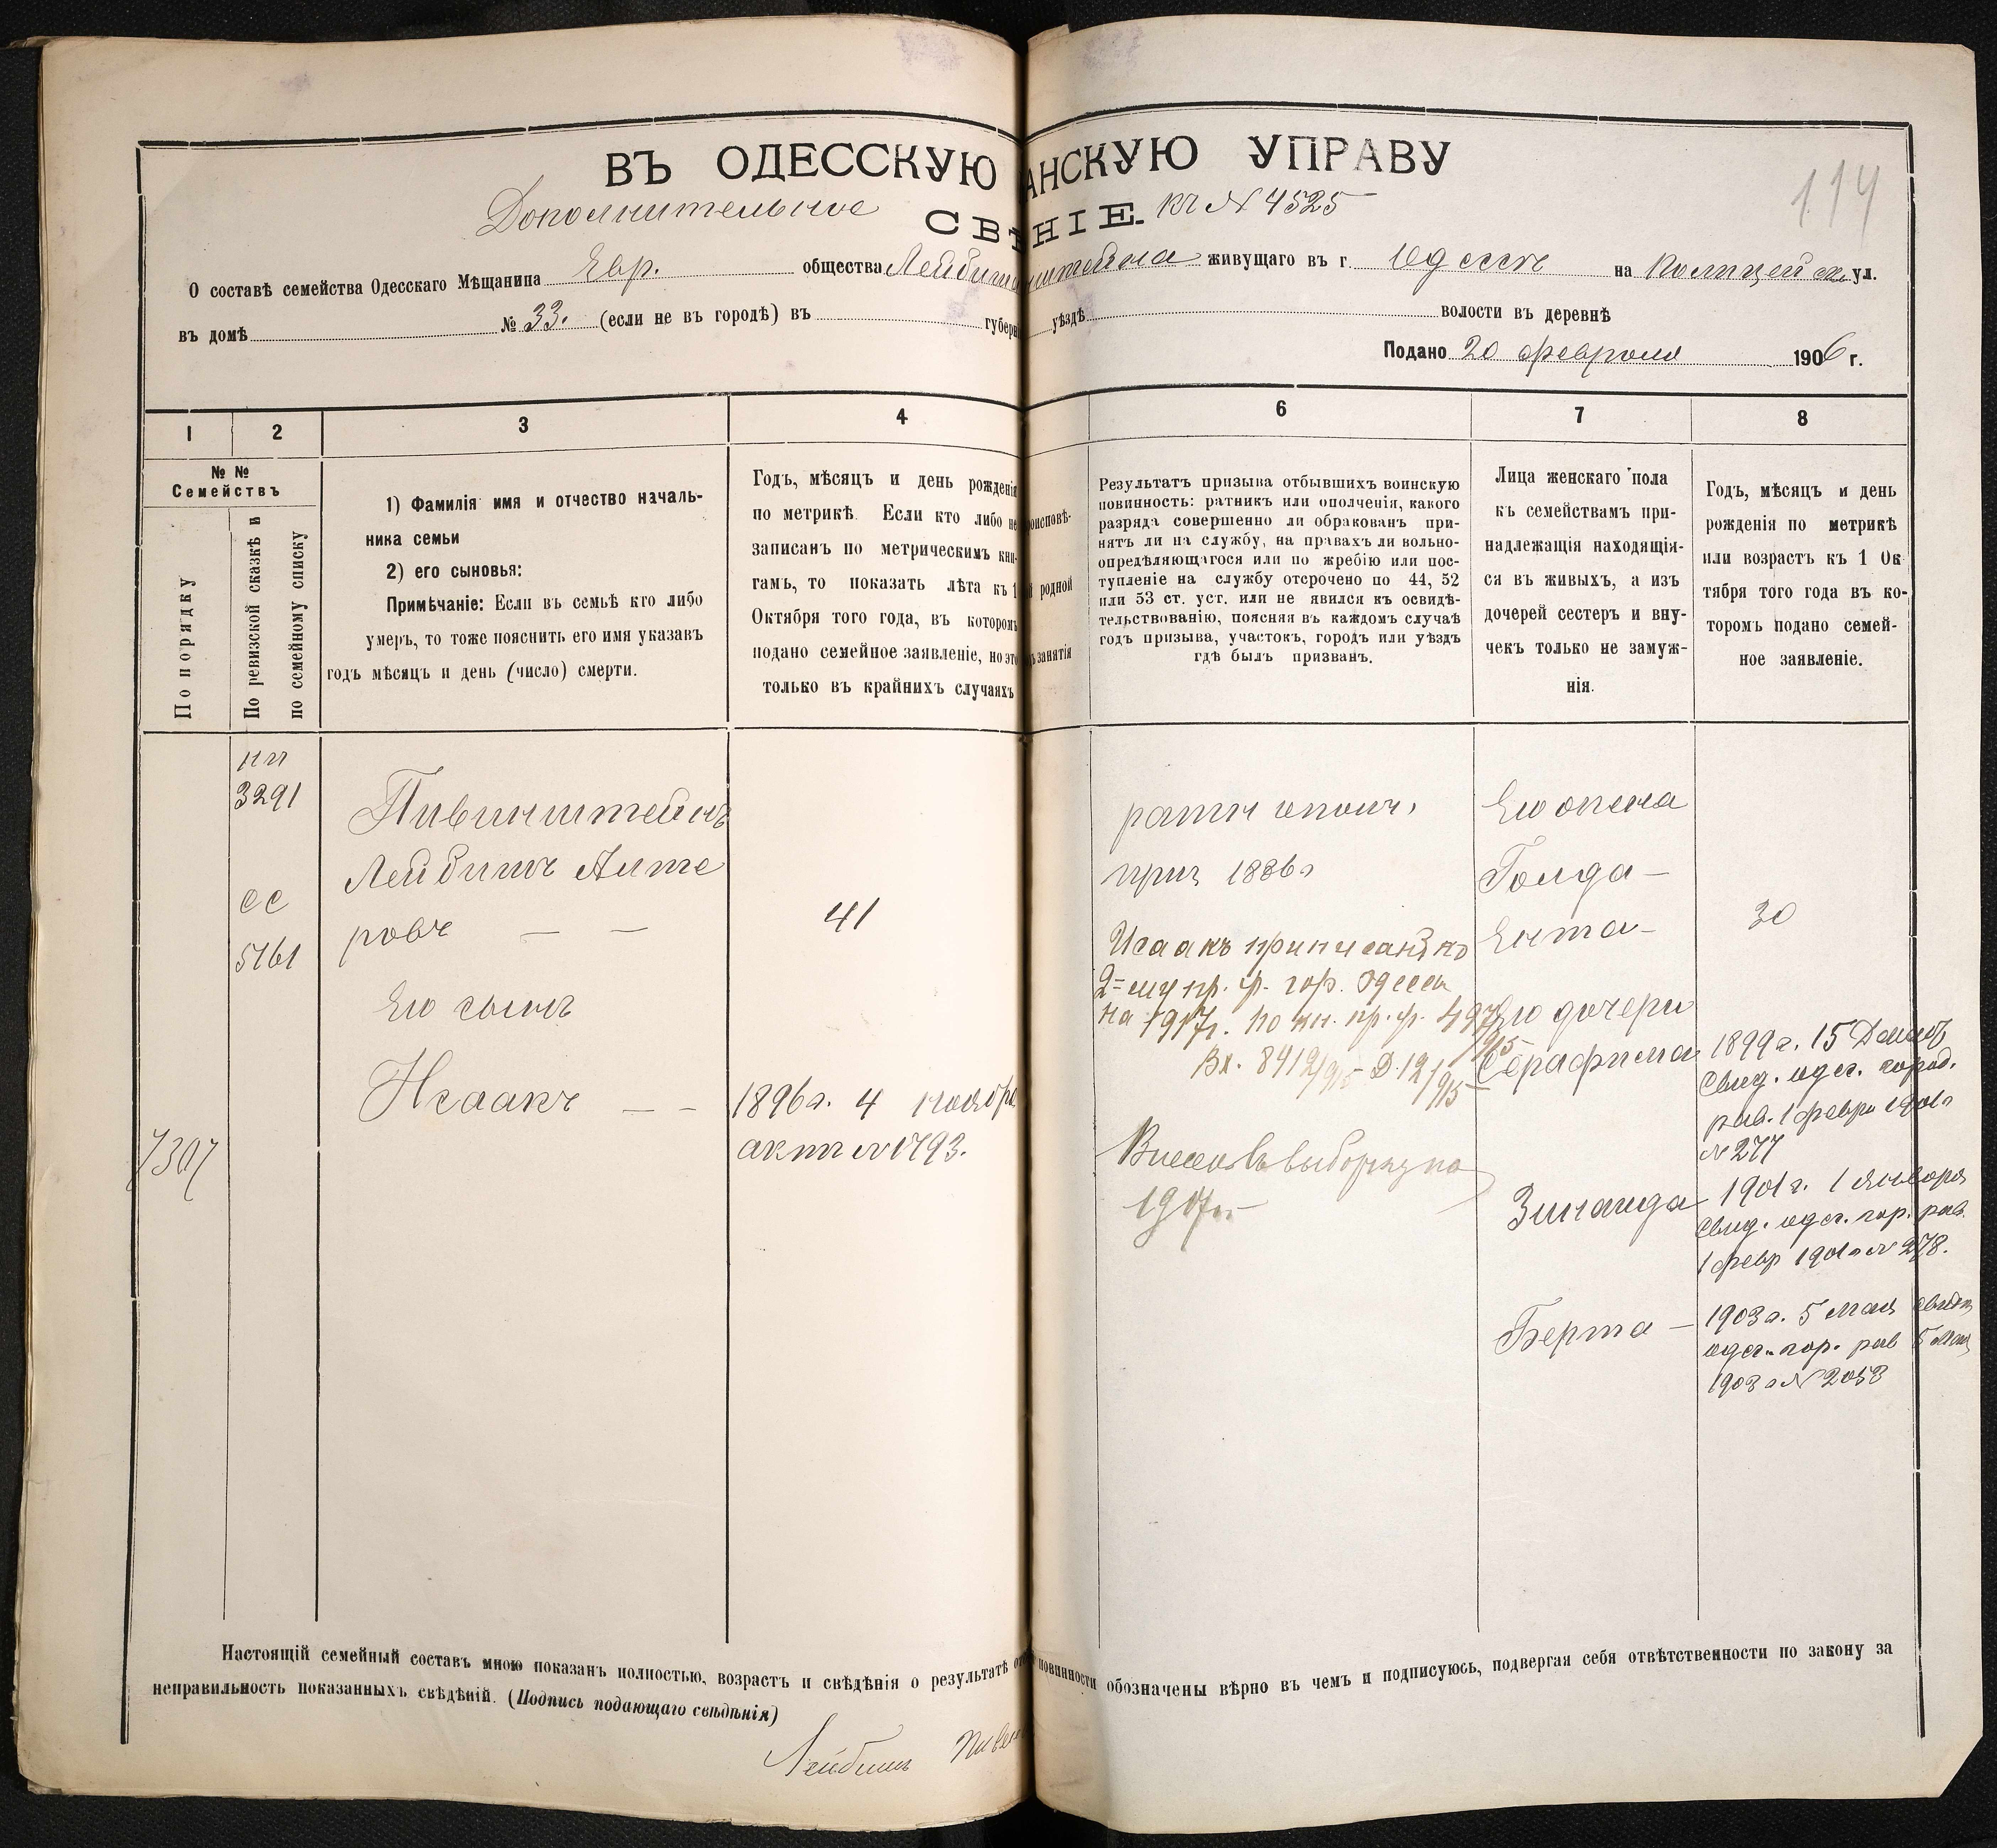 ВЪ ОДЕССКУЮ АНСКУЮ УПРАВУ
114
Дополнительное СВѢНІЕ. къ № 4525
О составѣ семейства Одесскаго Мѣщанина Евр. общества живущаго въ г. Одессѣ на Полицейской ул.
въ домѣ № 33. (если не въ городѣ) въ уѣздѣ волости въ деревнѣ
Подано 20 февраля 1906 г.
1 2 3 4 6 7 8
№ №
Семействъ
По порядку
По ревизской сказкѣ и
по семейному списку
1) Фамилія имя и отчество началь-
ника семьи
2) его сыновья:
Примѣчаніе: Если въ семьѣ кто либо
умеръ, то тоже пояснить его имя указавъ
годъ мѣсяцъ и день (число) смерти.
Годъ, мѣсяцъ и день рожденія
по метрикѣ. Если кто либо не
записанъ по метрическимъ кни-
гамъ, то показать лѣта къ 1
Октября того года, въ которомъ
подано семейное заявленіе, но это
только въ крайнихъ случаяхъ
роисповѣ-
родной
занятія
Результатъ призыва отбывшихъ воинскую
повинность: ратникъ или ополченія, какого
разряда совершенно ли обракованъ при-
нятъ ли на службу, на правахъ ли вольно-
опредѣляющагося или по жребію или пос-
тупленіе на службу отсрочено по 44, 52
или 53 ст. уст. или не явился къ освидѣ-
тельствованію, поясняя въ каждомъ случаѣ
годъ призыва, участокъ, городъ или уѣздъ
гдѣ былъ призванъ.
Лица женскаго пола
къ семействамъ при-
надлежащія находящія-
ся въ живыхъ, а изъ
дочерей сестеръ и вну-
чекъ только не замуж-
нія.
Годъ, мѣсяцъ и день
рожденія по метрикѣ
или возрастъ къ 1 Ок
тября того года въ ко-
торомъ подано семей-
ное заявленіе.
7307
пп
3291
сс
5161
Пивинштейнъ
Лейбишъ Алте
ровъ — —
Его сынъ
Исаакъ — —
41
1896 г. 4 ноября
актъ № 1793.
ратн ополч.
приз 1886 г
Исаакъ приписанъ ко
2=му пр. у. гор. Одессы
на 1917 г. по кн. пр. у. 497/915
Вх. 8412/915 Д. 12/915
Внесенъ въ выборку на
1917 г.
Его жена
Голда —
Ента —
Его дочери
Серафима
Зинаида
Берта —
30
1899 г. 15 Декаб
свид. одес. город.
рав. 1 февр 1901 г
№ 277
1901 г. 1 января
свид. одес. гор. рав.
1 февр 1901 г № 278.
1903 г. 5 Мая свидѣт
одес. гор. рав 5 Мая
1903 г № 2053
Настоящій семейный составъ мною показанъ полностью, возрастъ и свѣдѣнія о результатѣ повинности обозначены вѣрно въ чемъ и подписуюсь, подвергая себя отвѣтственности по закону за
неправильность показанныхъ свѣдѣній. (Подпись подающаго свѣдѣнія)
Лейбишъ Пивен